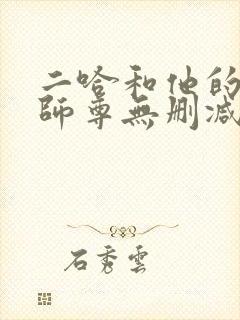 二哈和他的
師尊無刪减
石秀雲